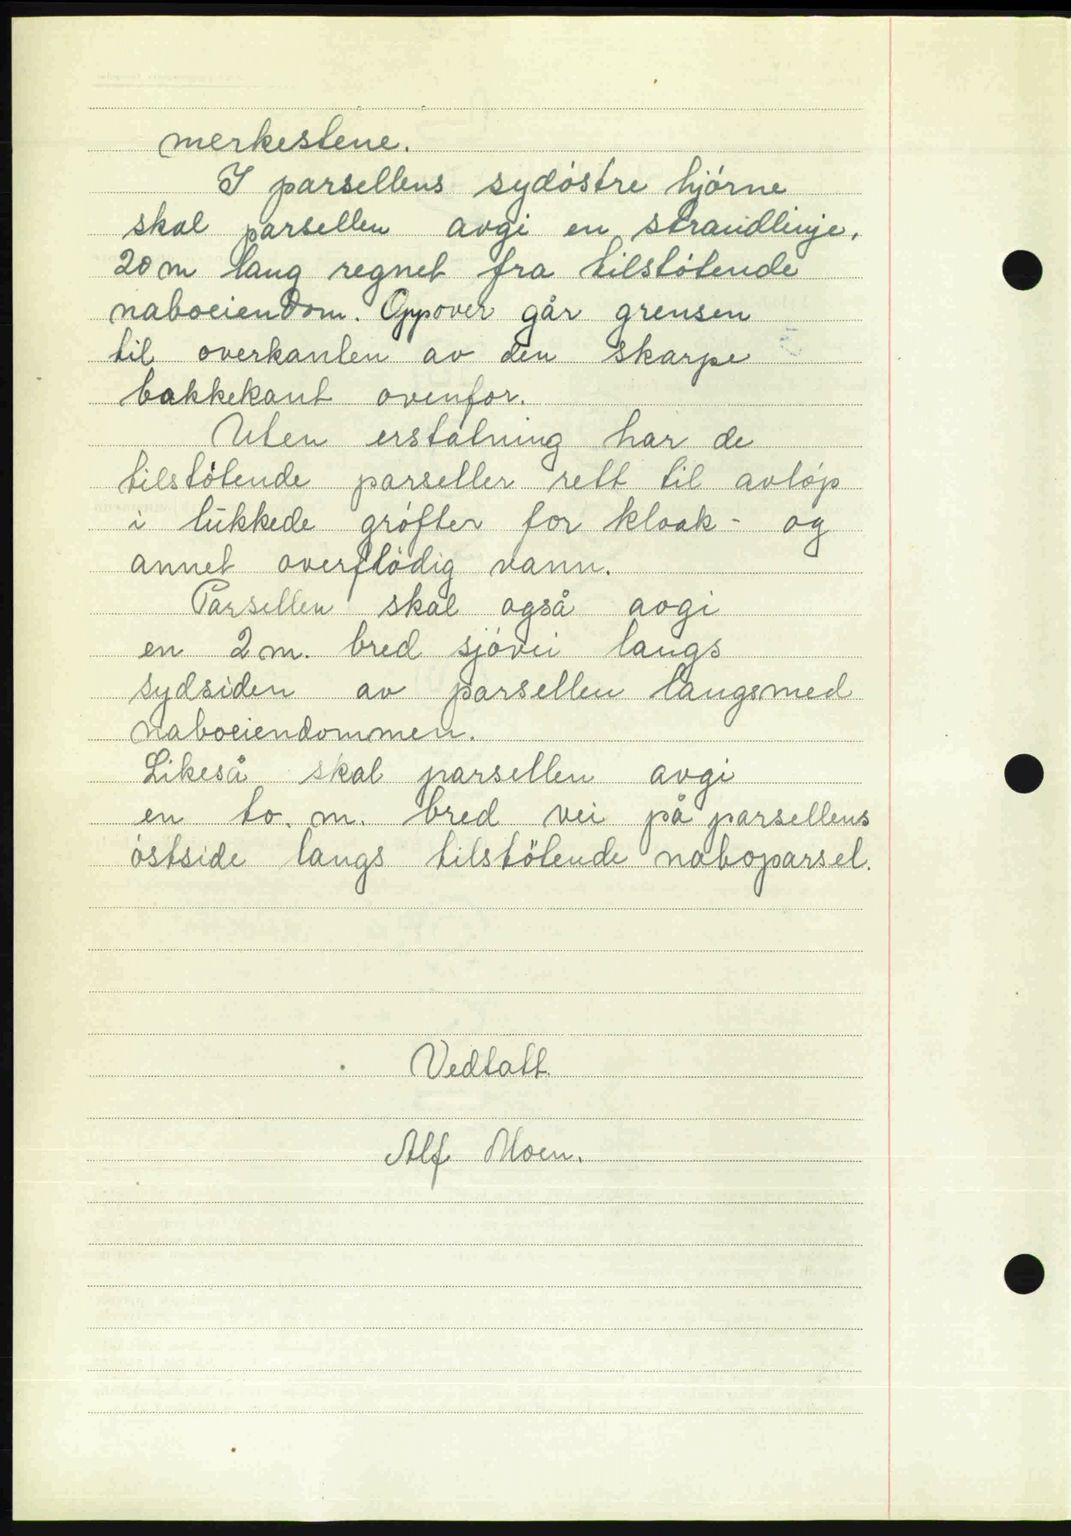 merkestene.
I parsellens sydöstre hjörne
skal parsellen avgi en strandlinje,
20 m lang regnet fra tilstötende
naboeiendom. Oppover går grensen
til overkanten av den skarpe
bakkekant ovenfor.
Uten erstatning har de
tilstötende parseller rett til avlöp
i lukkede gröfter for kloak- og
annet overflödig vann.
Parsellen skal også avgi
en 2 m. bred sjövei langs
sydsiden av parsellen langsmed
naboeiendommen.
Likeså skal parsellen avgi
en to. m. bred vei på parsellens
östside langs tilstötende naboparsel.
Vedtatt.
Alf Moen.